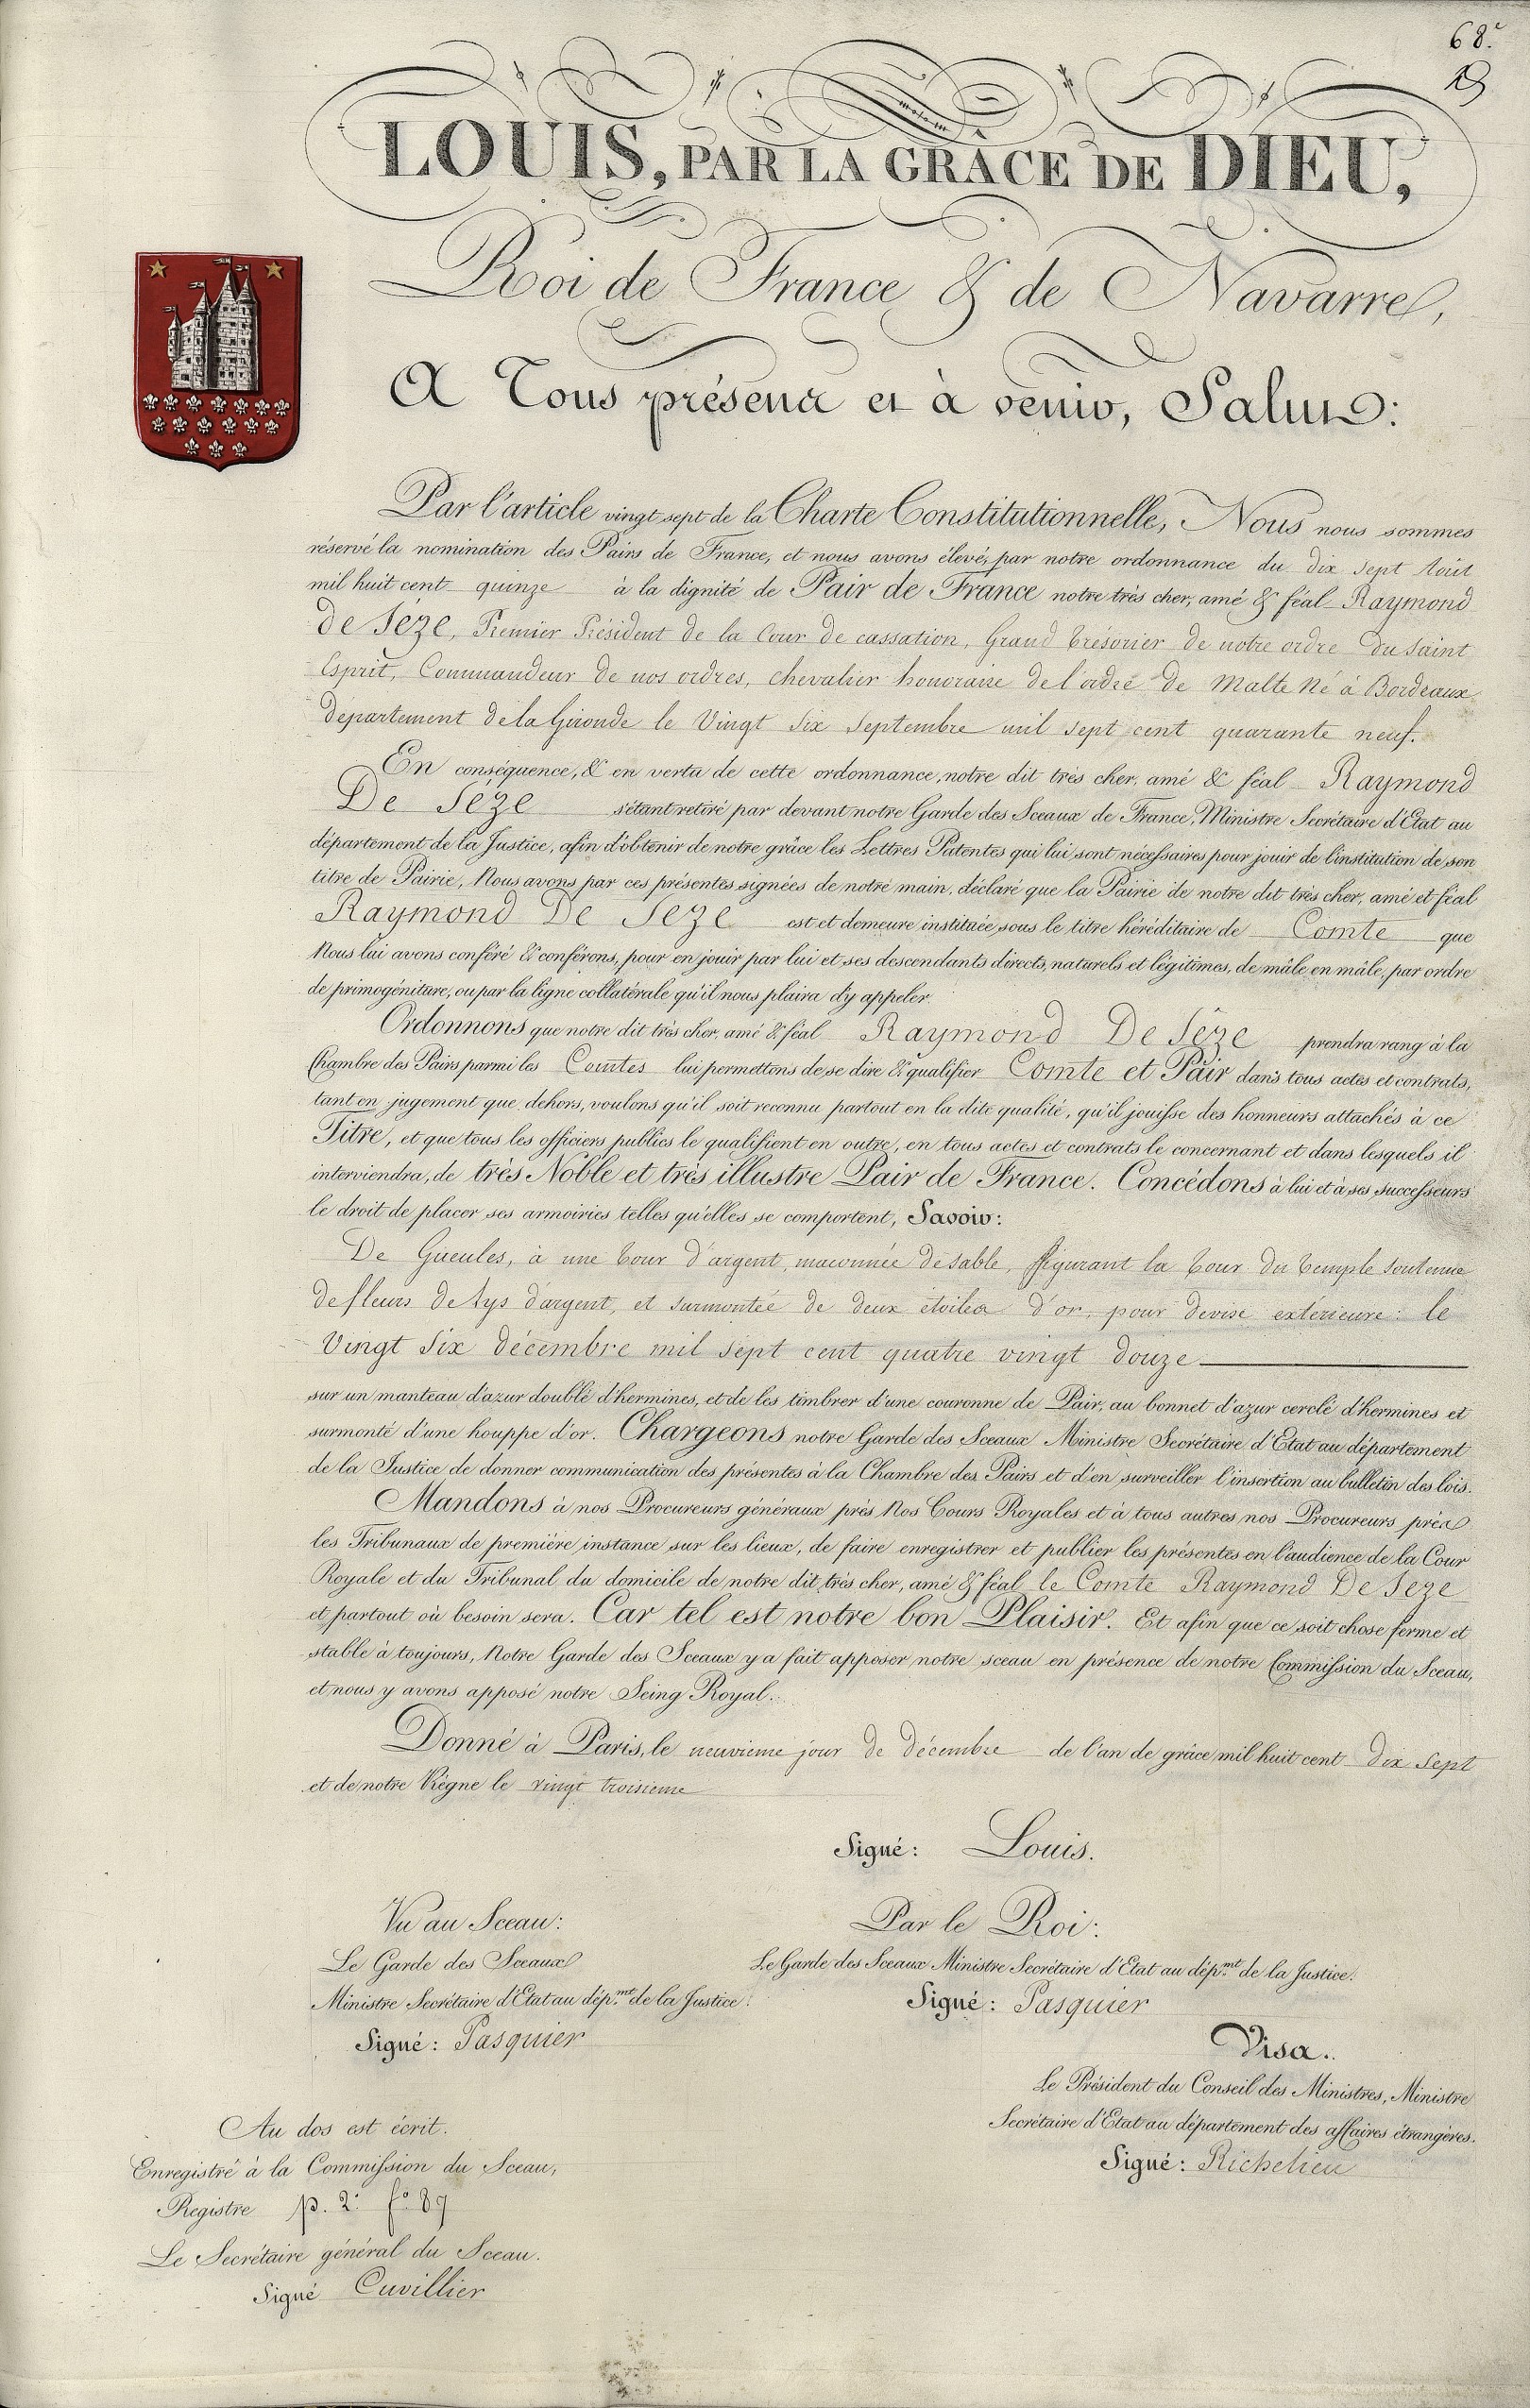 68.e
19
LOUIS, PAR LA GRÂCE DE DIEU,
Roi de France & de Navarre,
A Tous présens et à venir, Salut:
Par l'article vingt sept de la Charte Constitutionnelle, Nous nous sommes
réservé la nomination des Pairs de France, et nous avons élevé, par notre ordonnance du dix sept Aout
mil huit cent quinze à la dignité de Pair de France notre très cher, amé & féal Raymond
De Séze, Premier Président de la Cour de cassation, Grand trésorier de notre ordre du saint
Esprit, Commandeur de nos ordres, chevalier honoraire de l'ordre de Malte Né à Bordeaux
département de la Gironde le Vingt six septembre mil sept cent quarante neuf.
En conséquence, & en vertu de cette ordonnance, notre dit très cher, amé & féal Raymond
De Séze s'étant retiré par devant notre Garde des Sceaux de France, Ministre Secrétaire d'Etat au
département de la Justice, afin d'obtenir de notre grâce les Lettres Patentes qui lui sont nécessaires pour jouir de l'institution de son
titre de Pairie, Nous avons par ces présentes signées de notre main, déclaré que la Pairie de notre dit très cher, amé et féal
Raymond De Seze est et demeure instituée sous le titre héréditaire de Comte que
Nous lui avons conféré & conférons, pour en jouir par lui et ses descendants directs, naturels et légitimes, de mâle en mâle, par ordre
de primogéniture, ou par la ligne collatérale qu'il nous plaira d'y appeler.
Ordonnons que notre dit très cher, amé & féal Raymond De Séze prendra rang à la
Chambre des Pairs parmi les Comtes lui permettons de se dire & qualifier Comte et Pair dans tous actes et contrats,
tant en jugement que dehors, voulons qu'il soit reconnu partout en la dite qualité, qu'il jouisse des honneurs attachés à ce
Titre, et que tous les officiers publics le qualifient en outre, en tous actes et contrats le concernant et dans lesquels il
interviendra, de très Noble et très illustre Pair de France. Concédons à lui et à ses successeurs
le droit de placer ses armoiries telles qu'elles se comportent, Savoir:
De Gueules, à une tour d'argent, maconnée de sable, figurant la tour du temple soutenue
de fleurs de lys d'argent, et surmontée de deux étoiles d'or, pour devise extérieure: le
Vingt six décembre mil sept cent quatre vingt douze
sur un manteau d'azur doublé d'hermines, et de les timbrer d'une couronne de Pair, au bonnet d'azur cerclé d'hermines et
surmonté d'une houppe d'or. Chargeons notre Garde des Sceaux Ministre Secrétaire d'Etat au département
de la Justice de donner communication des présentes à la Chambre des Pairs et d'en surveiller l'insertion au bulletin des lois.
Mandons à nos Procureurs généraux près Nos Cours Royales et à tous autres nos Procureurs près
les Tribunaux de première instance sur les lieux, de faire enregistrer et publier les présentes en l'audience de la Cour
Royale et du Tribunal du domicile de notre dit très cher, amé & féal le Comte Raymond De Seze
et partout où besoin sera. Car tel est notre bon Plaisir. Et afin que ce soit chose ferme et
stable à toujours, Notre Garde des Sceaux y a fait apposer notre sceau en présence de notre Commission du Sceau,
et nous y avons apposé notre Seing Royal.
Donné à Paris, le neuvieme jour de décembre de l'an de grâce mil huit cent dix sept
et de notre Règne le vingt troisieme
Signé: Louis.
Vu au Sceau:
Le Garde des Sceaux
Ministre Secrétaire d'Etat au dép.mt de la Justice:
Signé: Pasquier
Par le Roi:
Le Garde des Sceaux Ministre Secrétaire d'Etat au dép.mt de la Justice.
Signé: Pasquier
Visa.
Le Président du Conseil des Ministres, Ministre
Secrétaire d'Etat au département des affaires étrangères.
Signé: Richelieu
Au dos est écrit.
Enregistré à la Commission du Sceau,
Registre p. 2. f.o 89
Le Secrétaire général du Sceau.
Signé Cuvillier